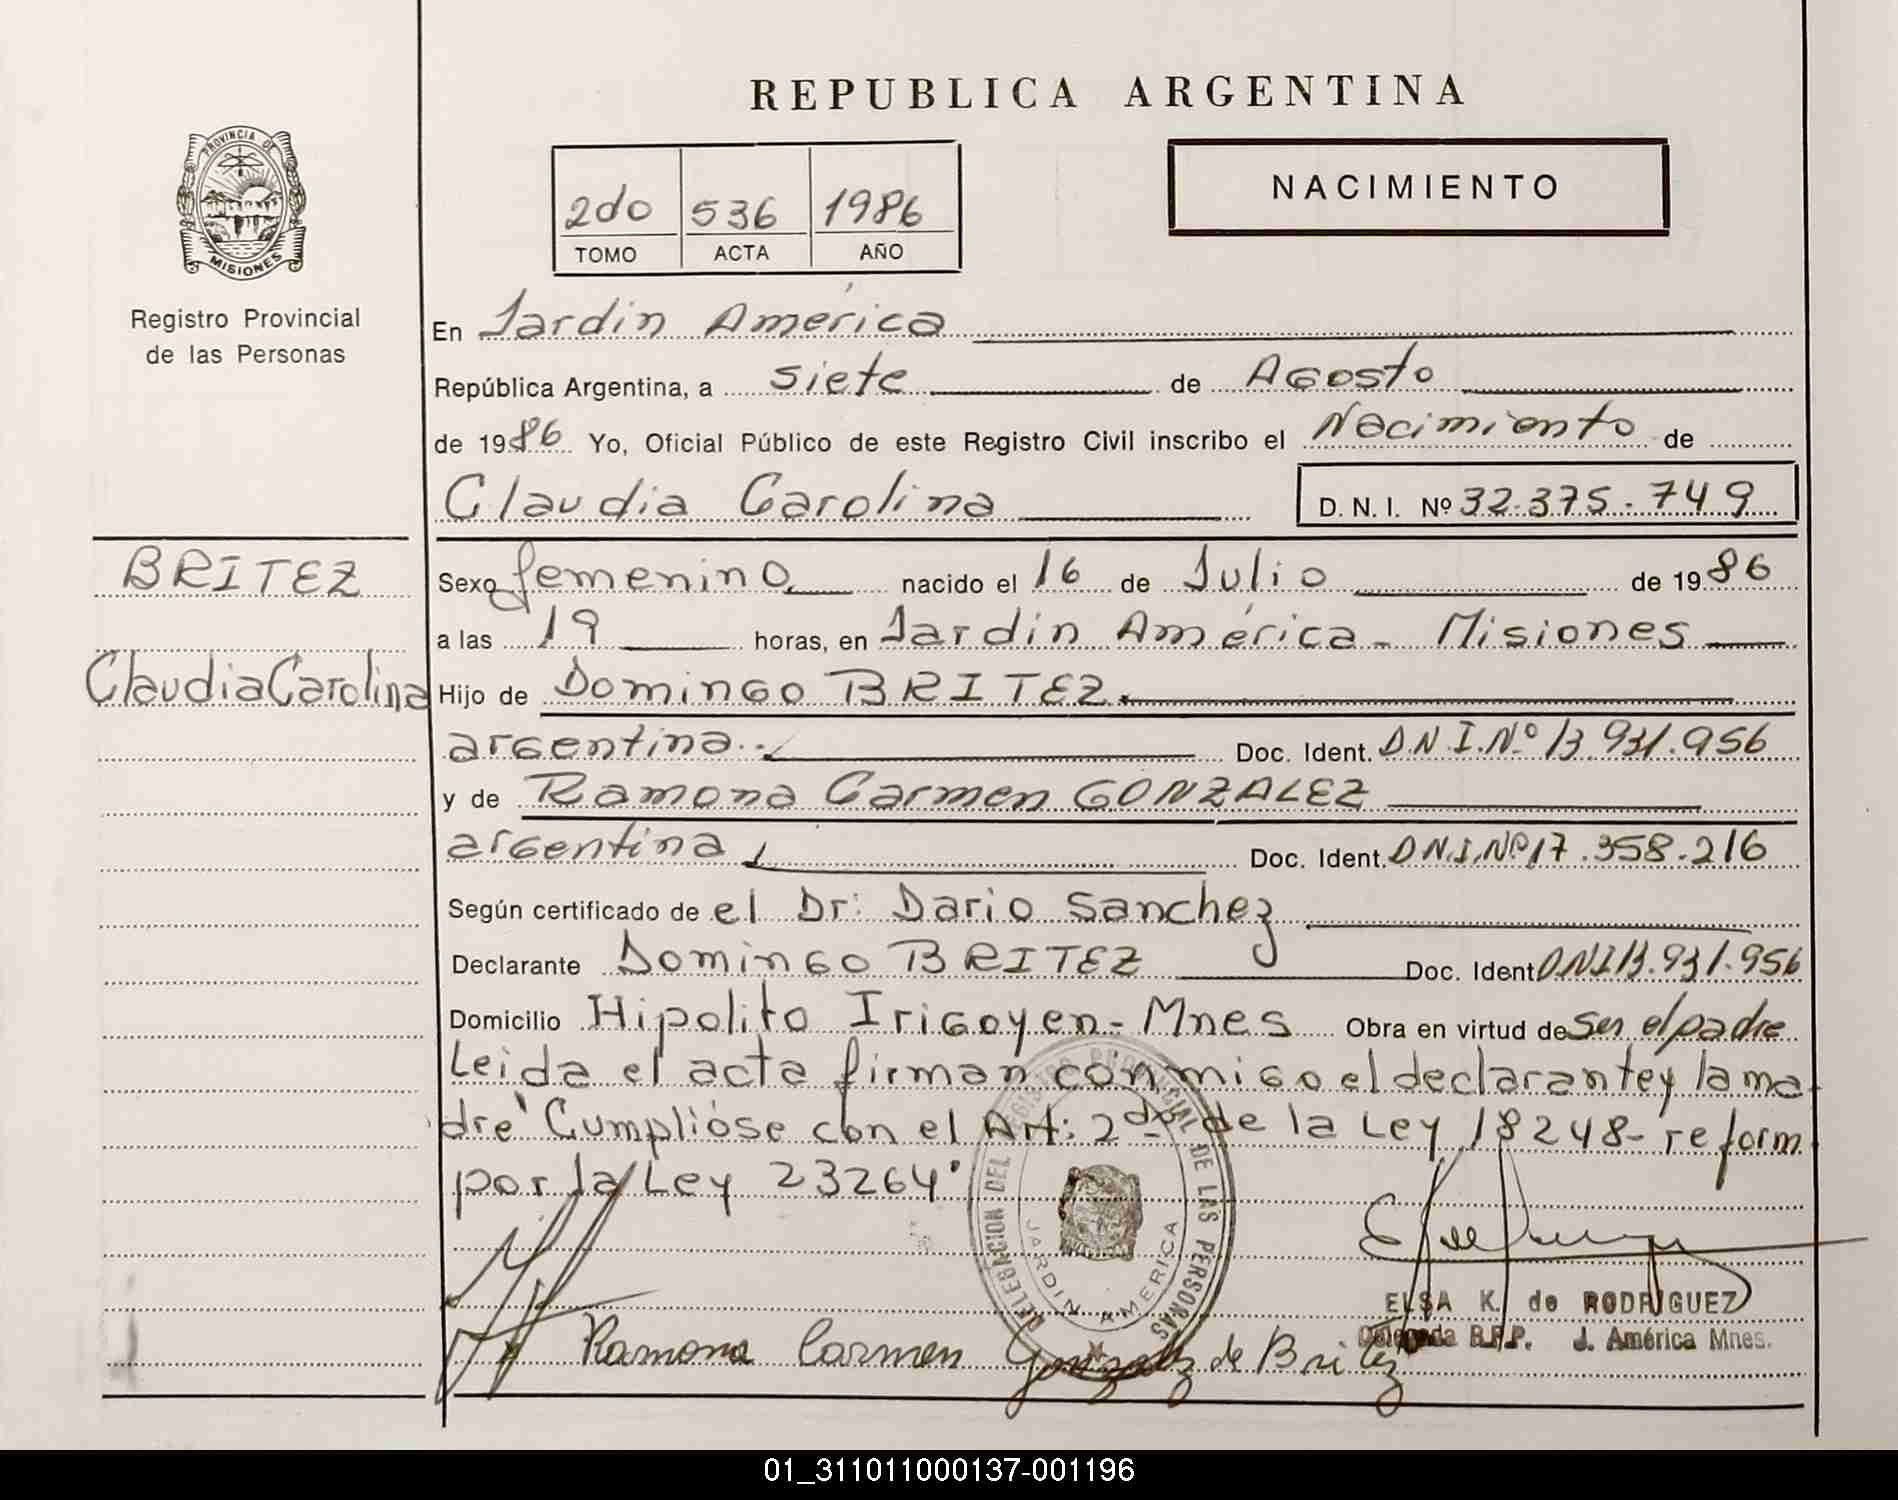 REPUBLICA ARGENTINA
PROVINCIA DE
MISIONES
Registro Provincial
de las Personas
2do 536 1986
TOMO ACTA AÑO
NACIMIENTO
En Jardin América
República Argentina, a siete de Agosto
de 1986 Yo, Oficial Público de este Registro Civil inscribo el Nacimiento de
Claudia Carolina D. N. I. Nº 32.375.749
BRITEZ
Claudia Carolina
Sexo femenino nacido el 16 de Julio de 1986
a las 19 horas, en Jardin América - Misiones
Hijo de Domingo BRITEZ
argentina Doc. Ident. D.N.I.Nº 13.931.956
y de Ramona Carmen GONZALEZ
argentina Doc. Ident. D.N.I.Nº 17.358.216
Según certificado de el Dr: Dario Sanchez
Declarante Domingo BRITEZ Doc. Ident. DNI 13.931.956
Domicilio Hipolito Irigoyen - Mnes Obra en virtud de ser el padre
Leida el acta firman conmigo el declarante y la ma
dre "Cumplióse con el Art: 2do de la Ley 18248- reform
por la Ley 23264"
DELEGACION DEL REGISTRO PROVINCIAL DE LAS PERSONAS
JARDIN AMERICA
ELSA K. de RODRIGUEZ
Delegada R.P.P. J. América Mnes.
Ramona Carmen Gonzalez de Britez
01_311011000137-001196